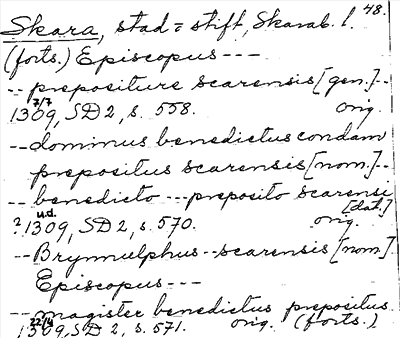 48.
Skara, stad = stift, Skarab. l.
(forts.) Episcopus - - -
-- prepositure scarensis [gen.] --
7/7
1309, SD 2, s. 558. orig.
-- dominus benedictus condam
prepositus scarensis [nom.] --
-- benedicto --- preposito scarensi
[dat.]
u.d.
? 1309, SD 2, s. 570. orig.
-- Brynnulphus -- scarensis [nom.]
Episcopus - - -
-- magister benedictus prepositus
22/4
1309, SD 2, s. 571. orig. (forts.)